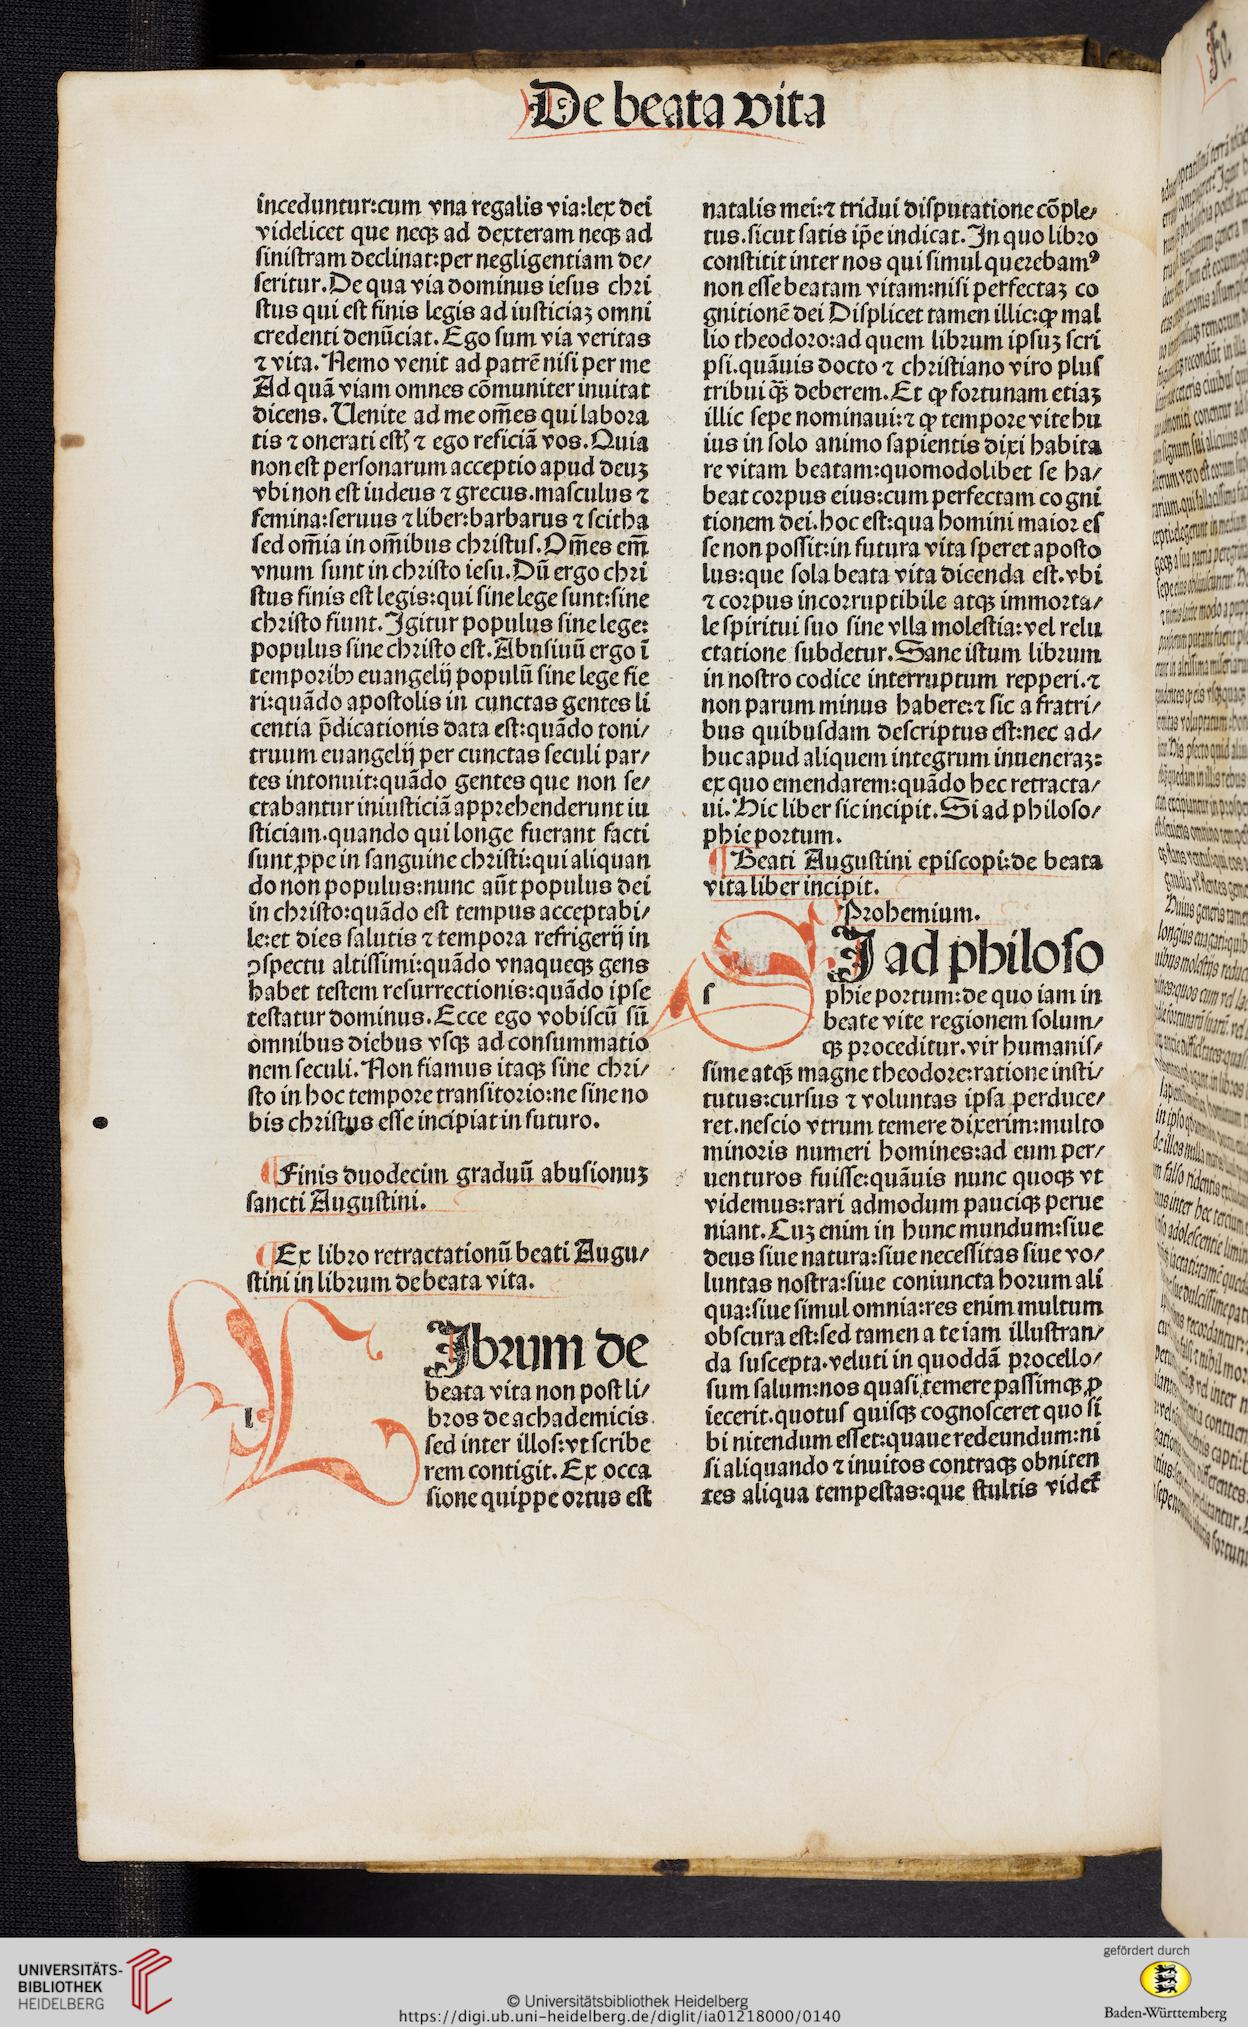 De beata vita
inceduntur:cum vna regalis via:lex dei
videlicet que neqꝫ ad dexteram neqꝫ ad
sinistram declinat:per negligentiam de/
seritur.De qua via dominus iesus chri
stus qui est finis legis ad iusticiaꝫ omni
credenti denūciat.Ego sum via veritas
⁊ vita.Nemo venit ad patrē nisi per me
Ad quā viam omnes cōmuniter inuitat
dicens.Uenite ad me om̄es qui labora
tis ⁊ onerati ⁊ ego reficiā vos.Quia
non est personarum acceptio apud deuꝫ
vbi non est iudeus ⁊ grecus.masculus ⁊
femina:seruus ⁊ liber:barbarus ⁊ scitha
sed om̄ia in om̄ibus christus.Om̄es em̄
vnum sunt in christo iesu.Dū ergo chri
stus finis est legis:qui sine lege sunt:sine
christo fiunt.Igitur populus sine lege:
populus sine christo est.Abusiuū ergo ī
temporibꝰ euangelij populū sine lege fie
ri:quādo apostolis in cunctas gentes li
centia p̄dicationis data est:quādo toni/
truum euangelij per cunctas seculi par/
tes intonuit:quādo gentes que non se/
ctabantur iniusticiā apprehenderunt iu
sticiam.quando qui longe fuerant facti
sunt ꝓpe in sanguine christi:qui aliquan
do non populus:nunc aūt populus dei
in christo:quādo est tempus acceptabi/
le:et dies salutis ⁊ tempora refrigerij in
ꝯspectu altissimi:quādo vnaqueqꝫ gens
habet testem resurrectionis:quādo ipse
testatur dominus.Ecce ego vobiscū sū
omnibus diebus vsqꝫ ad consummatio
nem seculi.Non fiamus itaqꝫ sine chri/
sto in hoc tempore transitorio:ne sine no
bis christus esse incipiat in futuro.
¶Finis duodecim graduū abusionuꝫ
sancti Augustini.
¶Ex libro retractationū beati Augu/
stini in librum de beata vita.
l
Ibrum de
beata vita non post li/
bros de achademicis
sed inter illos:vt scribe
rem contigit.Ex occa
sione quippe ortus est
natalis mei:⁊ tridui disputatione cōple/
tus.sicut satis ip̄e indicat.In quo libro
constitit inter nos qui simul querebamꝰ
non esse beatam vitam:nisi perfectaꝫ co
gnitionē dei Displicet tamen illic:ꝙ mal
lio theodoro:ad quem librum ipsuꝫ scri
psi.quāuis docto ⁊ christiano viro plus
tribui qꝫ̄ deberem.Et ꝙ fortunam etiaꝫ
illic sepe nominaui:⁊ ꝙ tempore vite hu
ius in solo animo sapientis dixi habita
re vitam beatam:quomodolibet se ha/
beat corpus eius:cum perfectam cogni
tionem dei.hoc est:qua homini maior es
se non possit:in futura vita speret aposto
lus:que sola beata vita dicenda est.vbi
⁊ corpus incorruptibile atqꝫ immorta/
le spiritui suo sine vlla molestia:vel relu
ctatione subdetur.Sane istum librum
in nostro codice interruptum repperi.⁊
non parum minus habere:⁊ sic a fratri/
bus quibusdam descriptus est:nec ad/
huc apud aliquem integrum inueneraꝫ:
ex quo emendarem:quādo hec retracta/
ui.Hic liber sic incipit.Si ad philoso/
phie portum.
¶Beati Augustini episcopi:de beata
vita liber incipit.
Prohemium.
s
I ad philoso
phie portum:de quo iam in
beate vite regionem solum/
qꝫ proceditur.vir humanis/
sime atqꝫ magne theodore:ratione insti/
tutus:cursus ⁊ voluntas ipsa perduce/
ret.nescio vtrum temere dixerim:multo
minoris numeri homines:ad eum per/
uenturos fuisse:quāuis nunc quoqꝫ vt
videmus:rari admodum pauciqꝫ perue
niant.Cuꝫ enim in hunc mundum:siue
deus siue natura:siue necessitas siue vo/
luntas nostra:siue coniuncta horum ali
qua:siue simul omnia:res enim multum
obscura est:sed tamen a te iam illustran/
da suscepta.veluti in quoddā procello/
sum salum:nos quasi temere passimqꝫ ꝓ
iecerit.quotus quisqꝫ cognosceret quo si
bi nitendum esset:quaue redeundum:ni
si aliquando ⁊ inuitos contraqꝫ obniten
tes aliqua tempestas:que stultis videt̄
UNIVERSITÄTS-
BIBLIOTHEK
HEIDELBERG
© Universitätsbibliothek Heidelberg
https://digi.ub.uni-heidelberg.de/diglit/ia01218000/0140
gefördert durch
Baden-Württemberg